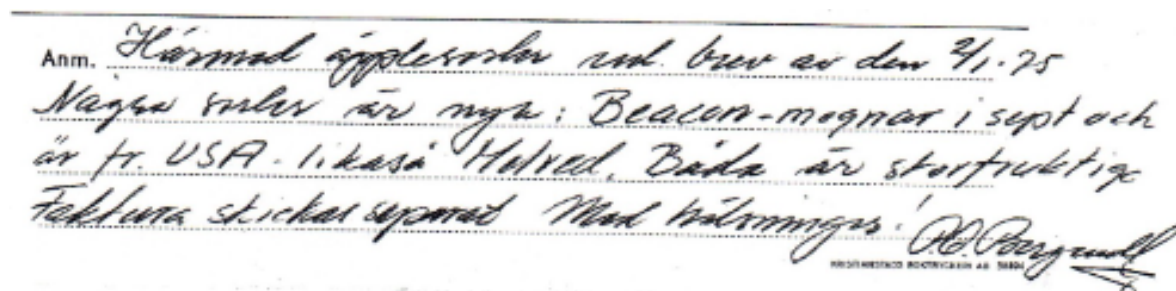 Anm. Härmed äpplesorter enl. brev av den 2/1.75
Några sorter är nya: Beacon-mognar i sept och
är fr. USA - likaså Hatred. Båda är storfruktiga
Faktura skickas separat Med hälsningar!
P.O. Bergwall
KRISTIANSTADS BOKTRYCKERI AB